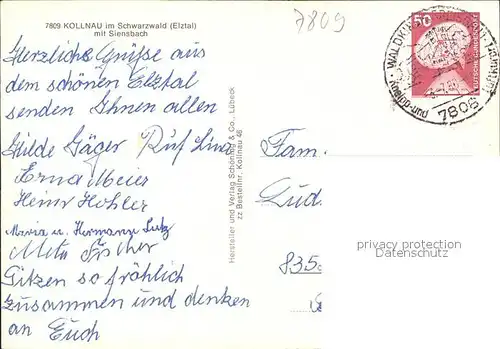 7809 KOLLNAU im Schwarzwald (Elztal)
mit Siensbach
7809
50
7808
Kneipp-und
Herzliche Grüße aus
dem schönen Elztal
senden Ihnen allen
Hilde Jäger Ruf Lina
Erna Meier
Heinr Hohler
Maria u. Hermann Lutz
Meta Fischer
Sitzen so fröhlich
zusammen und denken
an Euch
Hersteller und Verlag Schöning & Co., Lübeck
zz Bestellnr. Kollnau 46
Fam.
Lud
835
privacy protection
Datenschutz